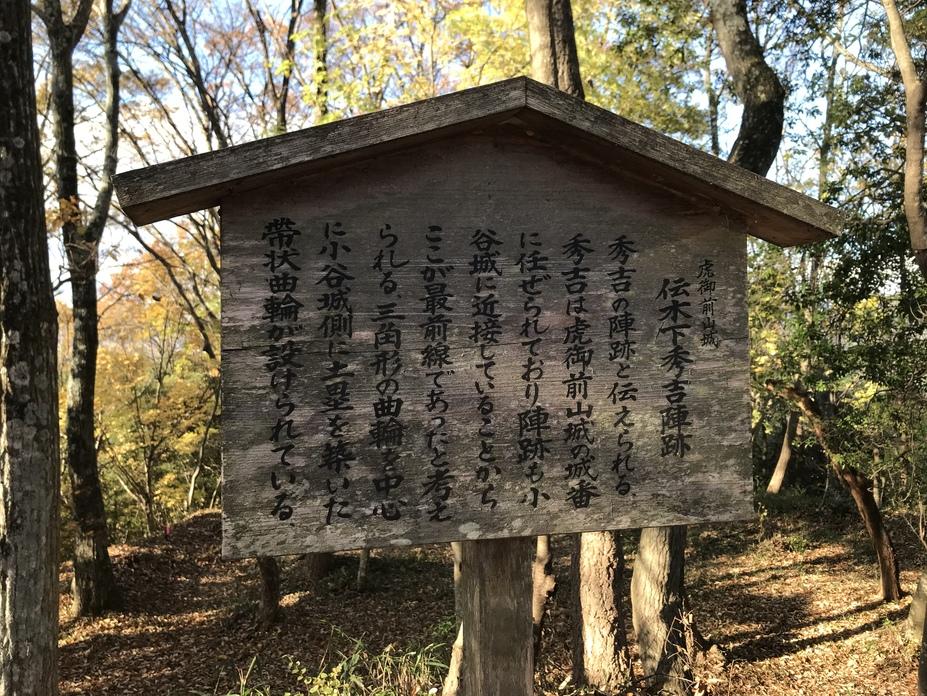 虎御前山城
伝木下秀吉陣跡
秀吉の陣跡と伝えられる。
秀吉は虎御前山城の城番
に任ぜられており陣跡も小
谷城に近接していることから
ここが最前線であったと考え
られる。三角形の曲輪を中心
に小谷城側に土塁を築いた
帯状曲輪が設けられている。